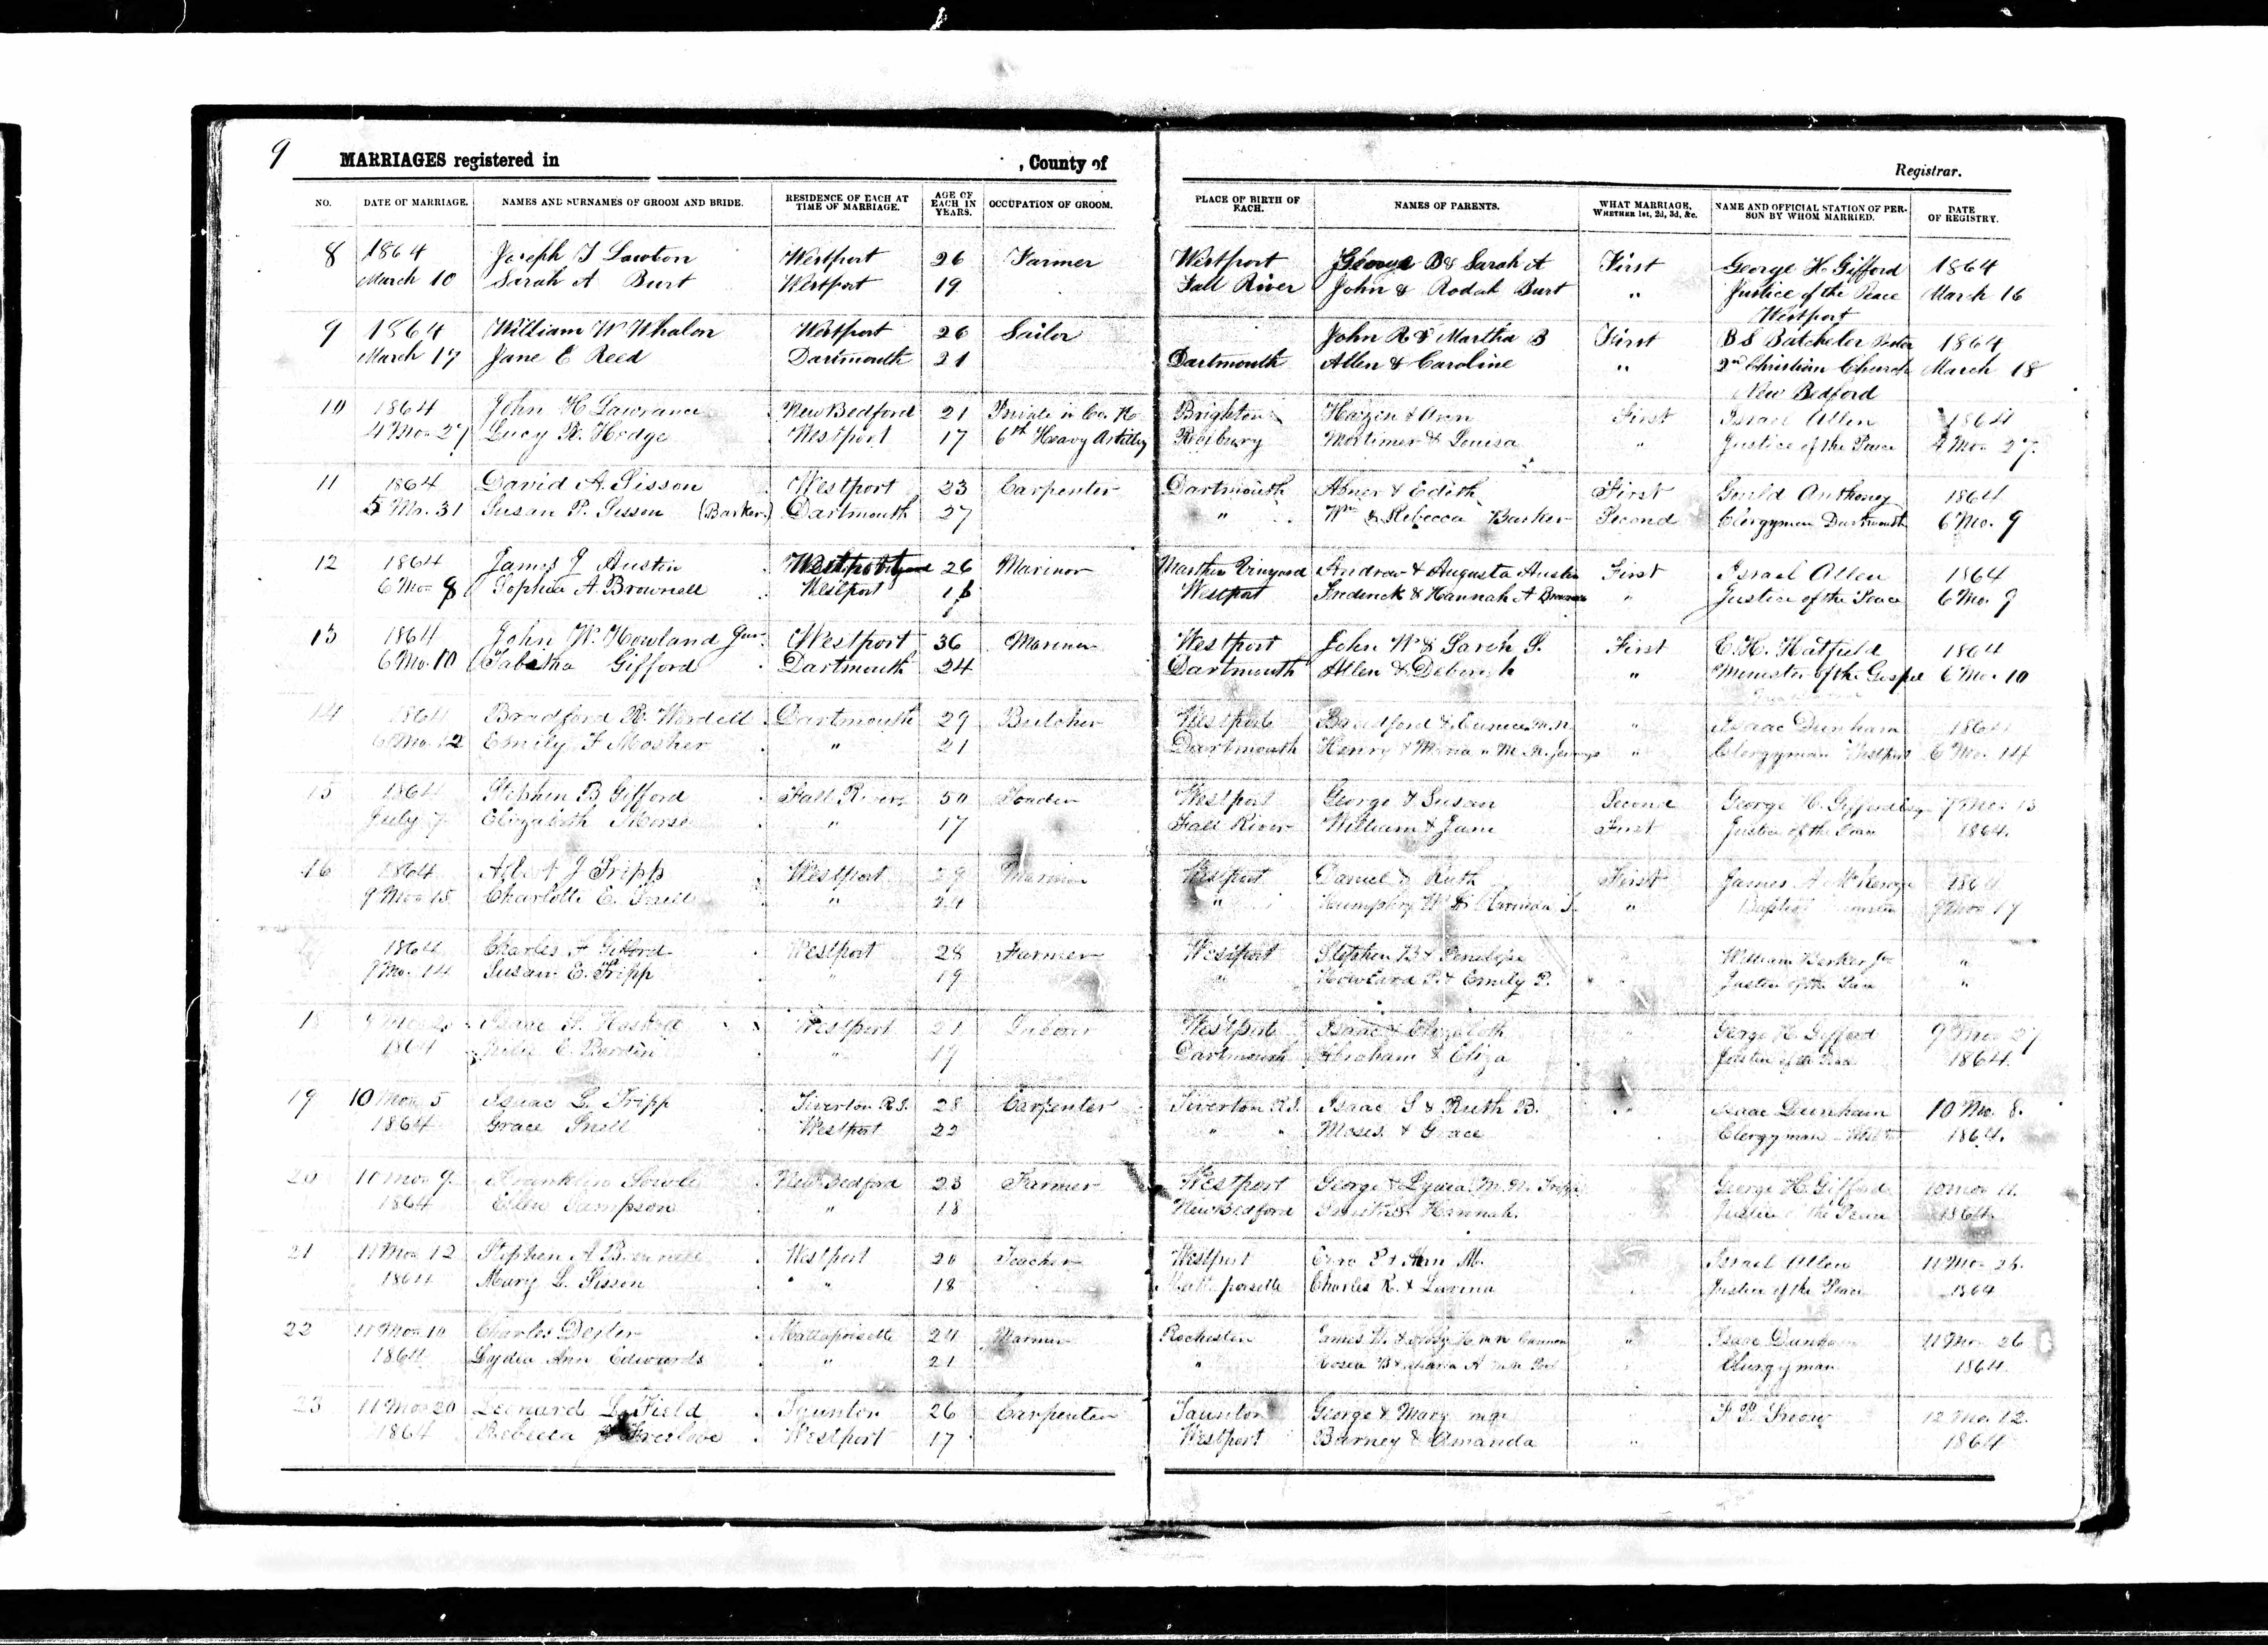 9
MARRIAGES registered in , County of
Registrar.
NO. DATE OF MARRIAGE. NAMES AND SURNAMES OF GROOM AND BRIDE. RESIDENCE OF EACH AT TIME OF MARRIAGE. AGE OF EACH IN YEARS. OCCUPATION OF GROOM. PLACE OF BIRTH OF EACH. NAMES OF PARENTS. WHAT MARRIAGE, WHETHER 1st, 2d, 3d, &c. NAME AND OFFICIAL STATION OF PERSON BY WHOM MARRIED. DATE OF REGISTRY.
8 1864 Joseph T Lawton Westport 26 Farmer Westport George B & Sarah A First George H Gifford 1864
March 10 Sarah A Burt Westport 19 Fall River John & Rodah Burt " Justice of the Peace March 16
Westport
9 1864 William W Whalon Westport 26 Sailor John R & Martha B First B S Batchelor Pastor 1864
March 17 Jane E Reed Dartmouth 21 Dartmouth Allen & Caroline " 2nd Christian Church March 18
New Bedford
10 1864 John H Lawrance New Bedford 21 Private in Co. K Brighton & Ann First Israel Allen 1864
4 Mo. 27 Lucy K. Hodge Westport 17 6th Heavy Artillry Roxbury Mortimer & Louisa " Justice of the Peace 4 Mo. 27.
11 1864 David A. Sisson Westport 23 Carpenter Dartmouth Abner & Edith First Gould Anthoney 1864
5 Mo. 31 Susan P. Sisson (Barker) Dartmouth 27 " Wm & Rebecca Barker Second Clergyman Dartmouth 6 Mo. 9
12 1864 James J Austin 26 Marinor Marthas Vinyard Andrew & Augusta Austin First Israel Allen 1864
6 Mo. 8 Sophia A. Brownell Westport Westport Frederick & Hannah A " Justice of the Peace 6 Mo. 9
13 1864 John W. Howland Jun. Westport 36 Mariner Westport John W & Sarah S. First E. H. Hatfield 1864
6 Mo. 10 Tabatha Gifford Dartmouth 24 Dartmouth Allen & Deborah " Minister of the Gospel 6 Mo. 10
14 1864 Bradford R. Wordell Dartmouth 29 Butcher Westport Bradford & Eunice " Isaac Dunham 1864
6 Mo. 12 Emily F Mosher " 21 Dartmouth Henry & " Clergyman Westport 6 Mo. 14
15 1864 Stephen B Gifford Fall River 50 Westport George & Susan Second George H. Gifford 7 Mo. 13
July 7 Elizabeth Morse " 17 Fall River William & Jane First Justice of the Peace 1864.
16 1864 J Tripp Westport 29 Mariner Westport Daniel & Ruth First James A 1864
9 Mo. 15 Charlotte E. Snell " 24 " Humphry W & " Baptist 9 Mo 17
1864 Charles A Gifford Westport 28 Farmer Westport Stephen B & Penelope William Barker Jr "
9 Mo. 14 Susan E. Tripp " 19 " Howland P. & Emily P. Justice of the Peace "
18 Isaac Westport 21 Westport Isaac & Elizabeth George H. Gifford 9 Mo 27
1864 Julia E " Dartmouth Abraham & Eliza Justice of the Peace 1864.
19 10 Mon 5 Isaac L. Tripp Tiverton R.I. 28 Carpenter Tiverton R.I. Isaac S & Ruth B. Isaac Dunham 10 Mo 8.
1864 Grace Snell Westport 22 " Moses & Grace Clergyman 1864.
20 10 Mon 9. Franklin Sowle New Bedford 23 Farmer Westport George & Lydia M. N. Tripp George H. Gifford 10 Mon 11.
1864 Ellen Sampson " 18 New Bedford Hannah Justice of the Peace 1864.
21 11 Mon 12 Stephen A Brownell Westport 20 Teacher Westport Ezra P & Ann M. Israel Allen 11 Mo 26.
1864 Mary L. Sisson " 18 Charles R. & Lavina Justice of the Peace 1864
22 11 Mon 10 Charles Dexter Mattapoisette 24 Mariner Rochester James " Isaac Dunham 11 Mon 26
1864 Lydia Ann Edwards " 21 " Clergyman 1864
23 11 Mon 20 Leonard L Field Taunton 26 Carpenter Taunton George & Mary 12 Mo. 12.
1864 Rebecca Freelove Westport 17 Westport Barney & Amanda " 1864